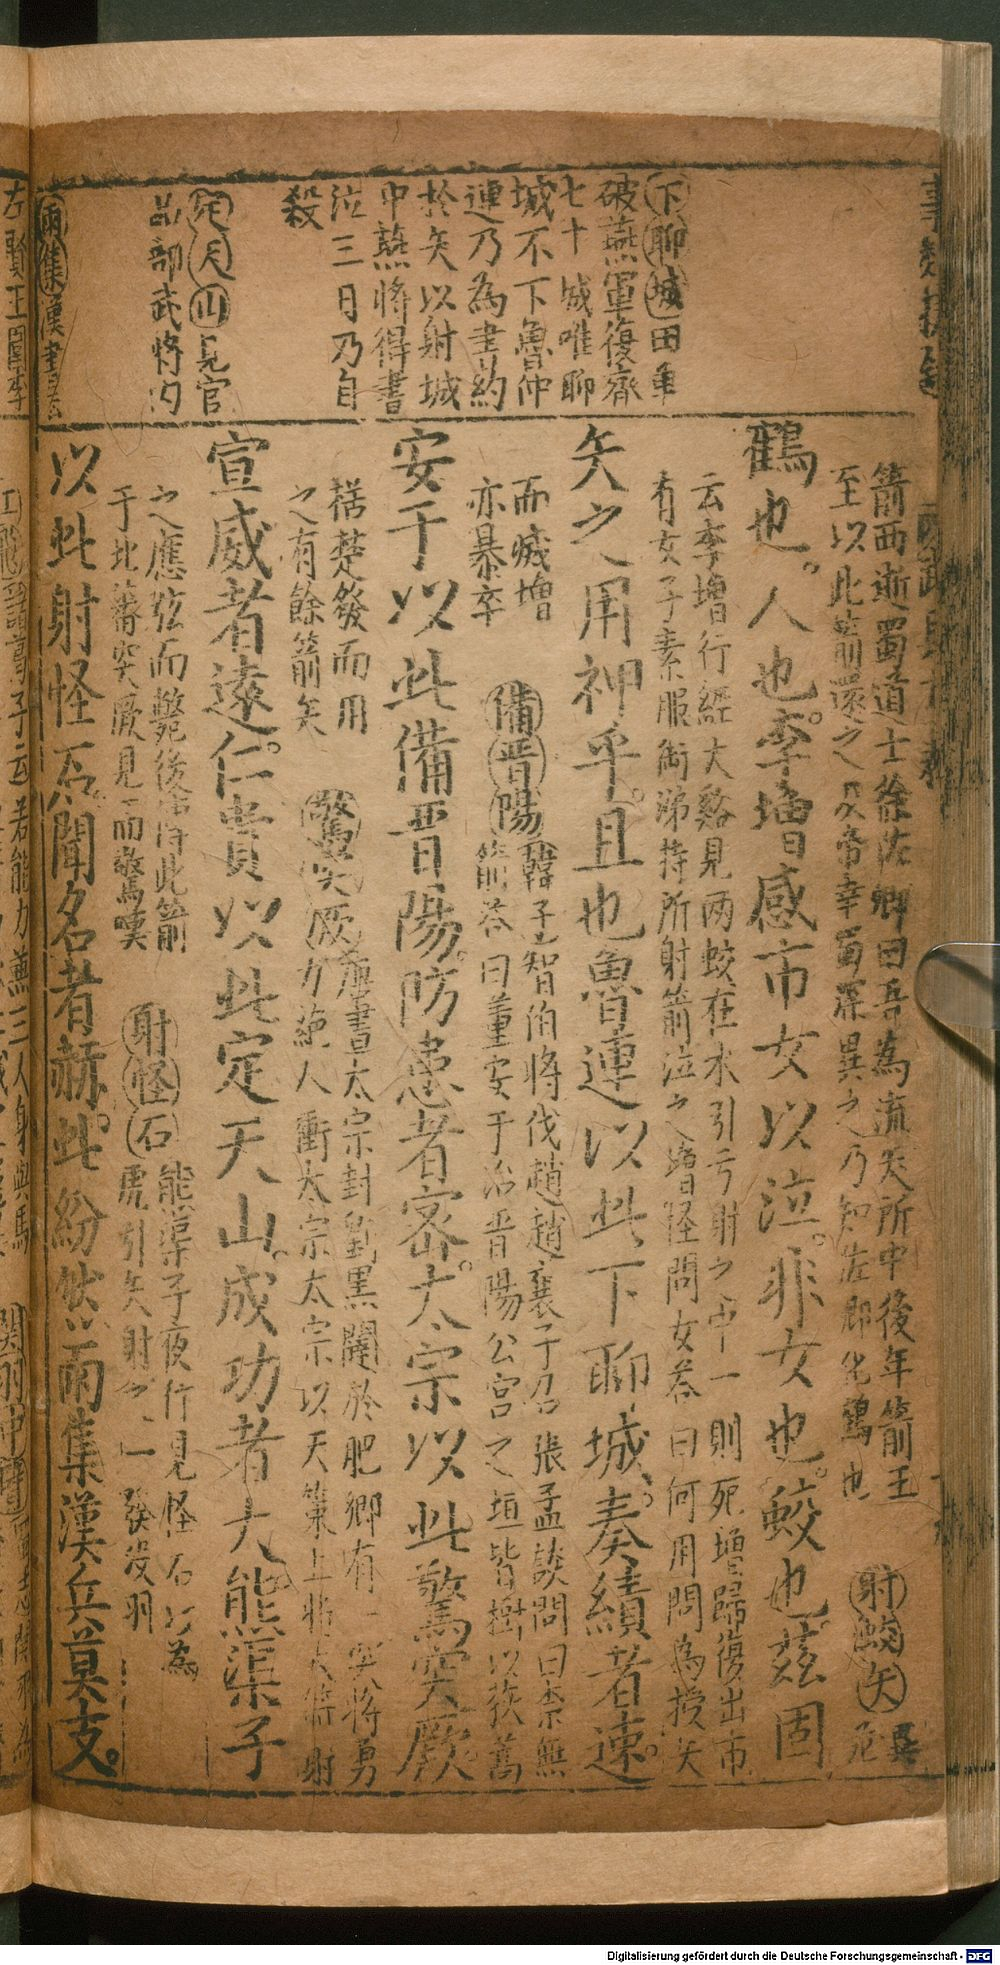 下聊城田單
破燕軍復齊
七十城唯聊
城不下魯仲
連乃為書約
於矢以射城
中燕將得書
泣三日乃自
殺
定天山見官
品部武將內
雨集漢書
箭西逝蜀道士徐佐卿曰吾為流矢所中後年箭王
至以此箭還之及帝幸蜀深異之乃知佐卿化鶴也
射蛟矢異
苑
鶴也。人也。李增感市女以泣。非女也。蛟也。茲固
云李增行經大谿見兩蛟在水引弓射之中一則死增歸復出市
有女子素服銜涕持所射箭泣之增怪問女荅曰何用問為授矢
矢之用神乎。且也魯連以此下聊城。奏績者速。
而滅增
亦暴卒
備晉陽
韓子智伯將伐趙趙襄子召張孟談問曰柰無
箭荅曰董安于治晉陽公宮之垣皆樹以荻蒿
安于以此備晉陽。防患者密。太宗以此驚突厥。
楛楚發而用
之有餘箭矣
驚突厥
唐書太宗封劉黑闥於肥鄉有一突將勇
力絕人衝太宗太宗以天策上將大箭射
宣威者遠。仁貴以此定天山。成功者大熊渠子
之應弦而斃後得此箭
于北蕃突厥見而驚嘆
射怪石
熊渠子夜行見怪石以為
虎引矢射之一發沒羽
以此射怪石。聞名者赫。此紛然雨集漢兵莫支。
Digitalisierung gefördert durch die Deutsche Forschungsgemeinschaft - DFG